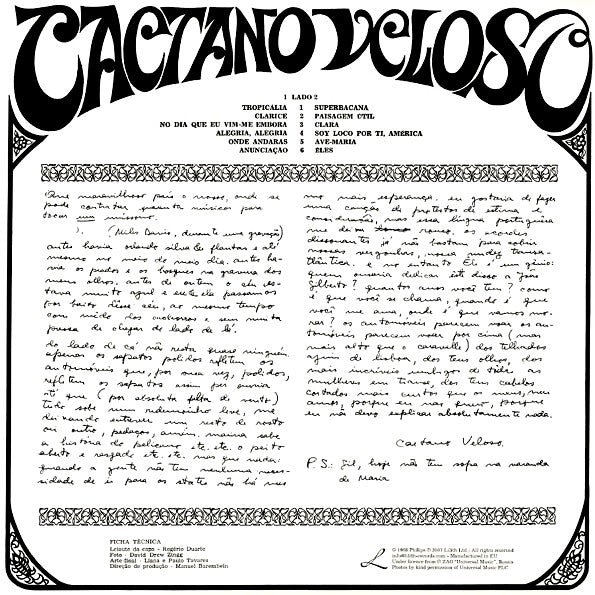 CAETANO VELOSO
1 LADO 2
TROPICALIA 1 SUPERBACANA
CLARICE 2 PAISAGEM ÚTIL
NO DIA QUE EU VIM-ME EMBORA 3 CLARA
ALEGRIA, ALEGRIA 4 SOY LOCO POR TI, AMÉRICA
ONDE ANDARAS 5 AVE-MARIA
ANUNCIAÇÃO 6 ÊLES
Que maravilhoso país o nosso, onde se
pode contratar quarenta músicos para
tocar um uníssono.
(Julio Barroso, durante uma gravação)
antes havia orlando silva & flautas e até
mesmo no meio do meio dia. antes ha-
via os prados e os bosques na gravura dos
meus olhos. antes de ontem o céu es-
tava muito azul e eu & ela passamos
por baixo dêsse céu, ao mesmo tempo
com medo dos cachorros e sem muita
pressa de chegar do lado de lá.
do lado de cá não resta quase ninguém.
apenas os sapatos polidos refletem os
automóveis que, por sua vez, polidos,
refletem os sapatos assim per omnia
até que (por absoluta falta de vento)
tudo sobe num redemoinho leve, me
deixando entrever um resto de rosto
ou outro, pedaços, assim.
a história do pelicano etc. etc. o peito
aberto e rasgado etc. etc. mas que nada:
quando a gente não tem nenhuma neces-
sidade de ir para os states não há mes
mo mais esperança. eu gostaria de fazer
uma canção de protesto de estima e
consideração, mas essa língua portuguêsa
me deixa rouco. os acordes
dissonantes já não bastam para cobrir
nossas vergonhas, nossa nudez transa-
tlântica. e no entanto Eli é um gênio:
quem ousaria dedicar êste disco a João
Gilberto? quantos anos você tem? como
é que você se chama, quando é que
você me ama, onde é que vamos mo-
rar? os automóveis parecem voar os au-
tomóveis parecem voar por cima (mas
mais alto que o caravelle) dos telhados
azuis de lisboa, dos teus olhos, dos
mais incríveis umbigos de tôdas as
mulheres em transe, dos teus cabelos
cortados mais curtos que os meus, meu
amor, porque eu não quero, porque
eu não devo explicar absolutamente nada.
Caetano Veloso.
P.S.: Gil, hoje não tem sopa na varanda
de Maria
FICHA TÉCNICA
Leiaute da capa - Rogério Duarte
Foto - David Drew Zingg
Arte final - Liana e Paulo Tavares
Direção de produção - Manuel Barenbein
L
© 1968 Philips ℗ 2007 Lilith Ltd - All rights reserved
info@lilithrecords.com - Manufactured in EU
Under licence from © ZAO "Universal Music", Russia
Photos by kind permission of Universal Music PLC